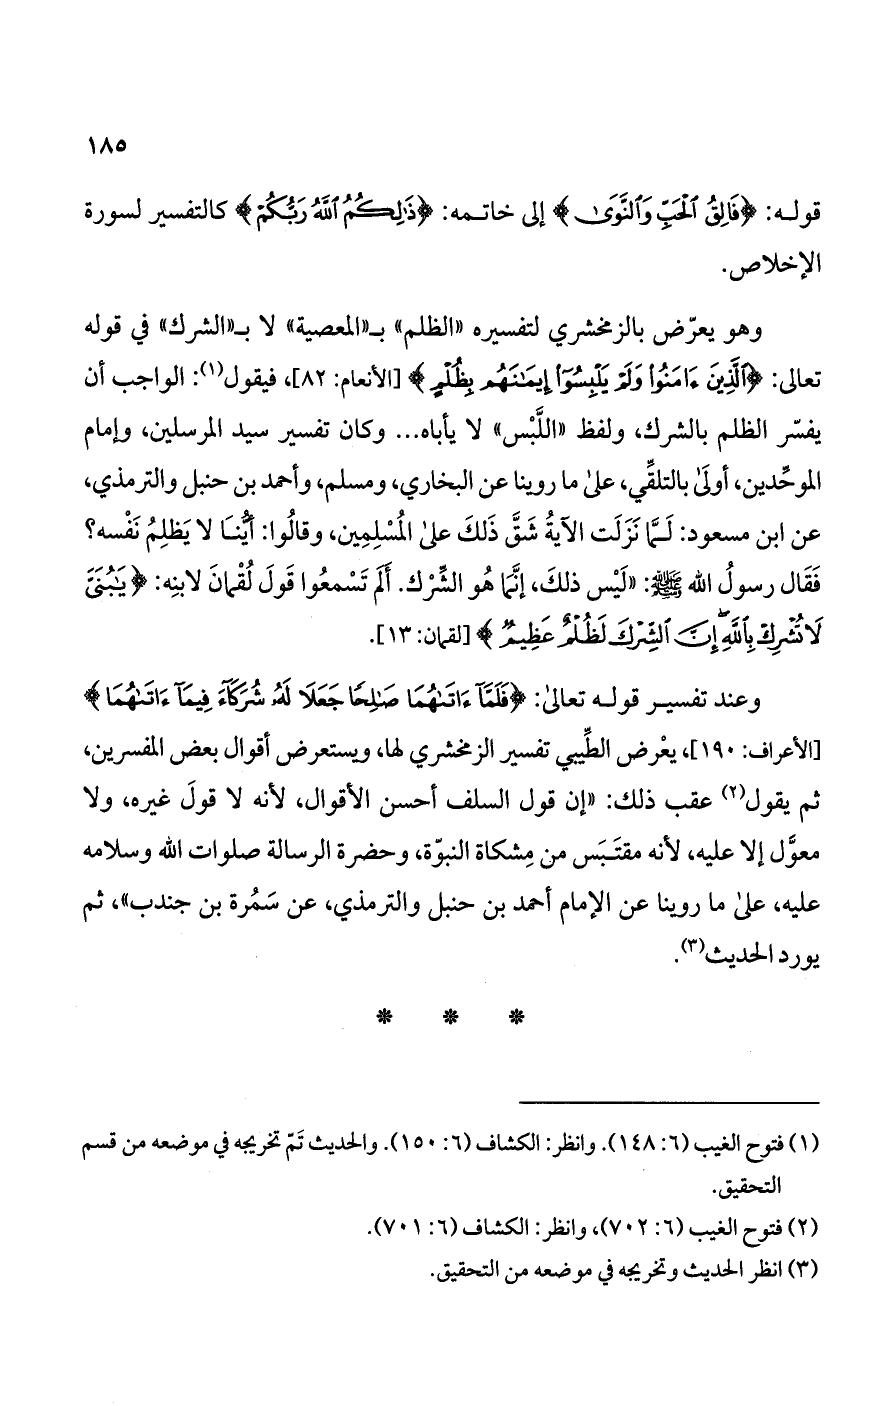 ١٨٥
قولـه: ﴿فَالِقُ ٱلْحَبِّ وَٱلنَّوَىٰ﴾ إلى خاتـمه: ﴿ذَٰلِكُمُ ٱللَّهُ رَبُّكُمْ﴾ كالتفسير لسورة
الإخلاص.
وهو يعرّض بالزمخشري لتفسيره «الظلم» بـ«المعصية» لا بـ«الشرك» في قوله
تعالى: ﴿ٱلَّذِينَ ءَامَنُوا۟ وَلَمْ يَلْبِسُوٓا۟ إِيمَـٰنَهُم بِظُلْمٍ﴾ [الأنعام: ٨٢]، فيقول(١): الواجب أن
يفسّر الظلم بالشرك، ولفظ «اللَّبْس» لا يأباه... وكان تفسير سيد المرسلين، وإمام
الموحِّدين، أولَىٰ بالتلقِّي، علىٰ ما روينا عن البخاري، ومسلم، وأحمد بن حنبل والترمذي،
عن ابن مسعود: لَـمَّا نَزَلَت الآيةُ شَقَّ ذَلكَ علىٰ الْمُسْلِمِين، وقالُوا: أَيُّنـَا لا يَظلِمُ نَفْسه؟
فَقَال رسولُ الله ﷺ: «لَيْس ذلكَ، إنَّمَا هُو الشِّرْك. أَلَم تَسْمعُوا قَولَ لُقْمانَ لابنِه: ﴿يَـٰبُنَىَّ
لَا تُشْرِكْ بِٱللَّهِ ۖ إِنَّ ٱلشِّرْكَ لَظُلْمٌ عَظِيمٌ﴾ [لقمان: ١٣].
وعند تفسيـر قولـه تعالىٰ: ﴿فَلَمَّآ ءَاتَىٰهُمَا صَـٰلِحًا جَعَلَا لَهُۥ شُرَكَآءَ فِيمَآ ءَاتَىٰهُمَا﴾
[الأعراف: ١٩٠]، يعْرض الطِّيبي تفسير الزمخشري لها، ويستعرض أقوال بعض المفسرين،
ثم يقول(٢) عقب ذلك: «إن قول السلف أحسن الأقوال، لأنه لا قولَ غيره، ولا
معوَّل إلا عليه، لأنه مقتَبَس من مِشكاة النبوّة، وحضرة الرسالة صلوات الله وسلامه
عليه، علىٰ ما روينا عن الإمام أحمد بن حنبل والترمذي، عن سَمُرة بن جندب»، ثم
يورد الحديث(٣).
* * *
(١) فتوح الغيب (٦: ١٤٨). وانظر: الكشاف (٦: ١٥٠). والحديث تَمّ تخريجه في موضعه من قسم
التحقيق.
(٢) فتوح الغيب (٦: ٧٠٢)، وانظر: الكشاف (٦: ٧٠١).
(٣) انظر الحديث وتخريجه في موضعه من التحقيق.